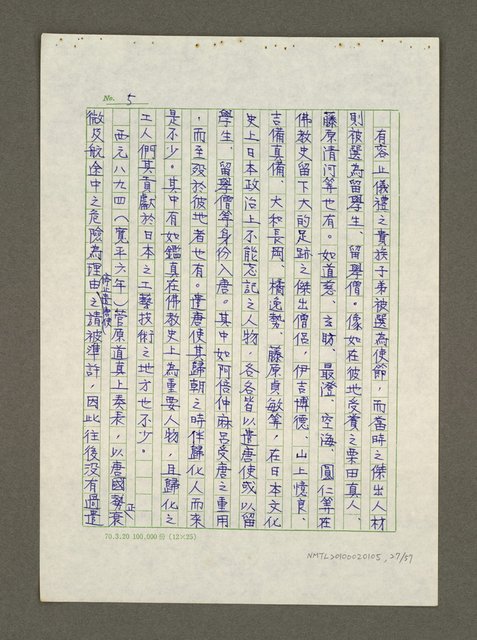 No. 5
有容止儀禮之貴族子弟被選為使節，而當時之傑出人材
則被選為留學生、留學僧。像如在彼地受賞之栗田真人、
藤原清河等也有。如道慈、玄昉、最澄、空海、圓仁等在
佛教史留下大的足跡之傑出僧侶，伊吉博德、山上憶良、
吉備真備、大和長岡、橘逸勢、藤原貞敏等，在日本文化
史上日本政治上不能忘記之人物，各各皆以遣唐使或以留
學生、留學僧等身份入唐。其中如阿倍仲麻呂受唐之重用
，而至歿於彼地者也有。遣唐使其歸朝之時伴歸化人而來
是不少。其中有如鑑真在佛教史上為重要人物，且歸化之
工人們其貢獻於日本之工藝技術之地才也不少。
西元八九四（寬平六年）菅原道真上奏表，以唐國勢衰
微及航途中之危險為理由之停止遣唐使請被準許，因此往後沒有正過遣
70.3.20 100,000份 (12×25)
NMTL20100020105, 27/57